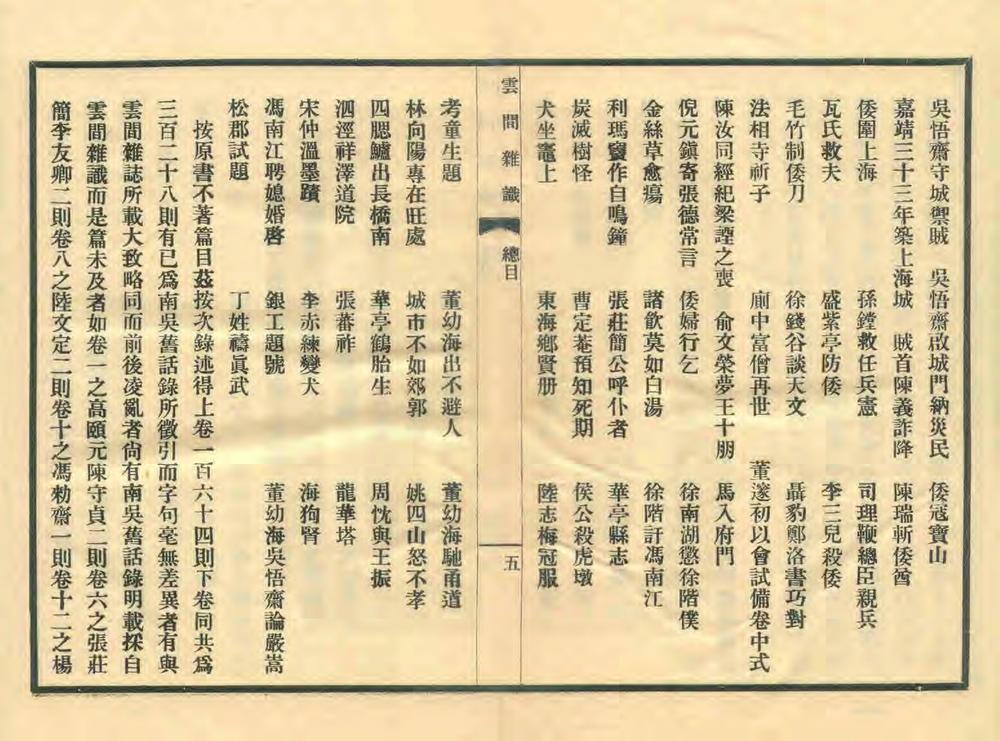 吳悟齋守城禦賊　吳悟齋啟城門納災民　倭寇寶山
嘉靖三十三年築上海城　賊首陳義詐降　陳瑞斬倭酋
倭圍上海　孫鏜救任兵憲　司理鞭總臣親兵
瓦氏救夫　盛紫亭防倭　李三兒殺倭
毛竹制倭刀　徐錢谷談天文　聶豹鄭洛書巧對
法相寺祈子　廁中富僧再世　董邃初以會試備卷中式
陳汝同經紀梁諲之喪　俞文榮夢王十朋　馬入府門
倪元鎮寄張德常言　倭婦行乞　徐南湖懲徐階僕
金絲草愈瘍　諸飲莫如白湯　徐階訐馮南江
利瑪竇作自鳴鐘　張莊簡公呼仆者　華亭縣志
炭滅樹怪　曹定菴預知死期　侯公殺虎墩
犬坐竈上　東海鄉賢册　陸志梅冠服
雲間雜識　總目　五
考童生題　董幼海出不避人　董幼海馳甬道
林向陽專在旺處　城市不如郊郭　姚四山怒不孝
四腮鱸出長橋南　華亭鶴胎生　周忱與王振
泗涇祥澤道院　張蕃祚　龍華塔
宋仲溫墨蹟　李赤練變犬　海狗腎
馮南江聘媳婚啓　銀工題號　董幼海吳悟齋論嚴嵩
松郡試題　丁姓禱眞武
按原書不著篇目茲按次錄述得上卷一百六十四則下卷同共爲
三百二十八則有已爲南吳舊話錄所徵引而字句毫無差異者有與
雲間雜誌所載大致略同而前後凌亂者尙有南吳舊話錄明載採自
雲間雜識而是篇未及者如卷一之高頤元陳守貞二則卷六之張莊
簡李友卿二則卷八之陸文定二則卷十之馮勑齋一則卷十二之楊